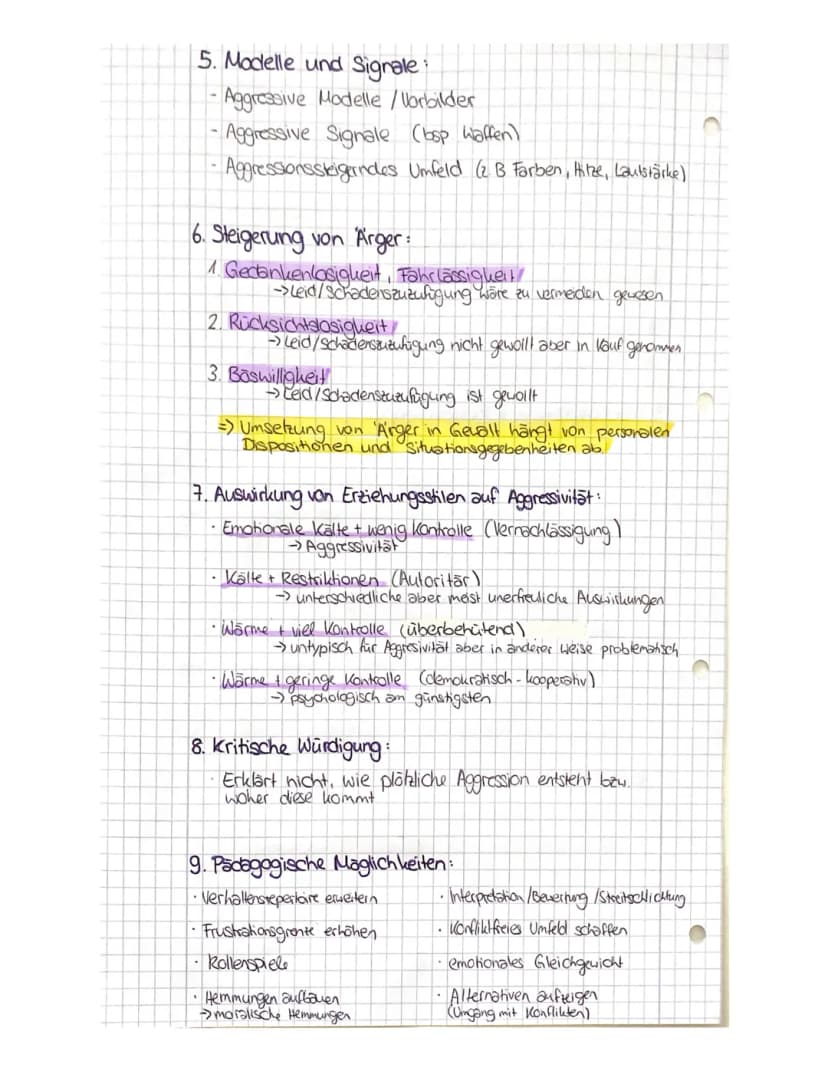 5. Modelle und Signale:
- Aggressive Modelle / Vorbilder
- Aggressive Signale (bsp Waffen)
- Aggressionssteigerndes Umfeld (z B Farben, Hitze, Lautstärke)
6. Steigerung von Ärger:
1. Gedankenlosigkeit, Fahrlässigkeit
→ Leid/Schadenszuzufügung wäre zu vermeiden gewesen
2. Rücksichtslosigkeit
→ Leid/Schadenszuzufügung nicht gewollt aber in Kauf genommen
3. Böswilligkeit
→ Leid/Schadenszuzufügung ist gewollt
=> Umsetzung von Ärger in Gewalt hängt von personalen
Dispositionen und Situationsgegebenheiten ab.
7. Auswirkung von Erziehungsstilen auf Aggressivität:
· Emotionale Kälte + wenig Kontrolle (Vernachlässigung)
→ Aggressivität
· Kälte + Restriktionen (Autoritär)
→ unterschiedliche aber meist unerfreuliche Auswirkungen
· Wärme + viel Kontrolle (überbehütend)
→ untypisch für Aggresivität aber in anderer Weise problematisch
· Wärme + geringe Kontrolle (demokratisch - kooperativ)
→ psychologisch am günstigsten
8. Kritische Würdigung:
· Erklärt nicht, wie plötzliche Aggression entsteht bzw.
woher diese kommt
9. Pädagogische Möglichkeiten:
· Verhaltensrepertoire erweitern
· Interpretation /Bewertung /Streitschlichtung
· Frustrationsgrenze erhöhen
· Konfliktfreies Umfeld schaffen
· Rollenspiele
· emotionales Gleichgewicht
· Hemmungen aufbauen
→ moralische Hemmungen
· Alternativen aufzeigen
(Umgang mit Konflikten)